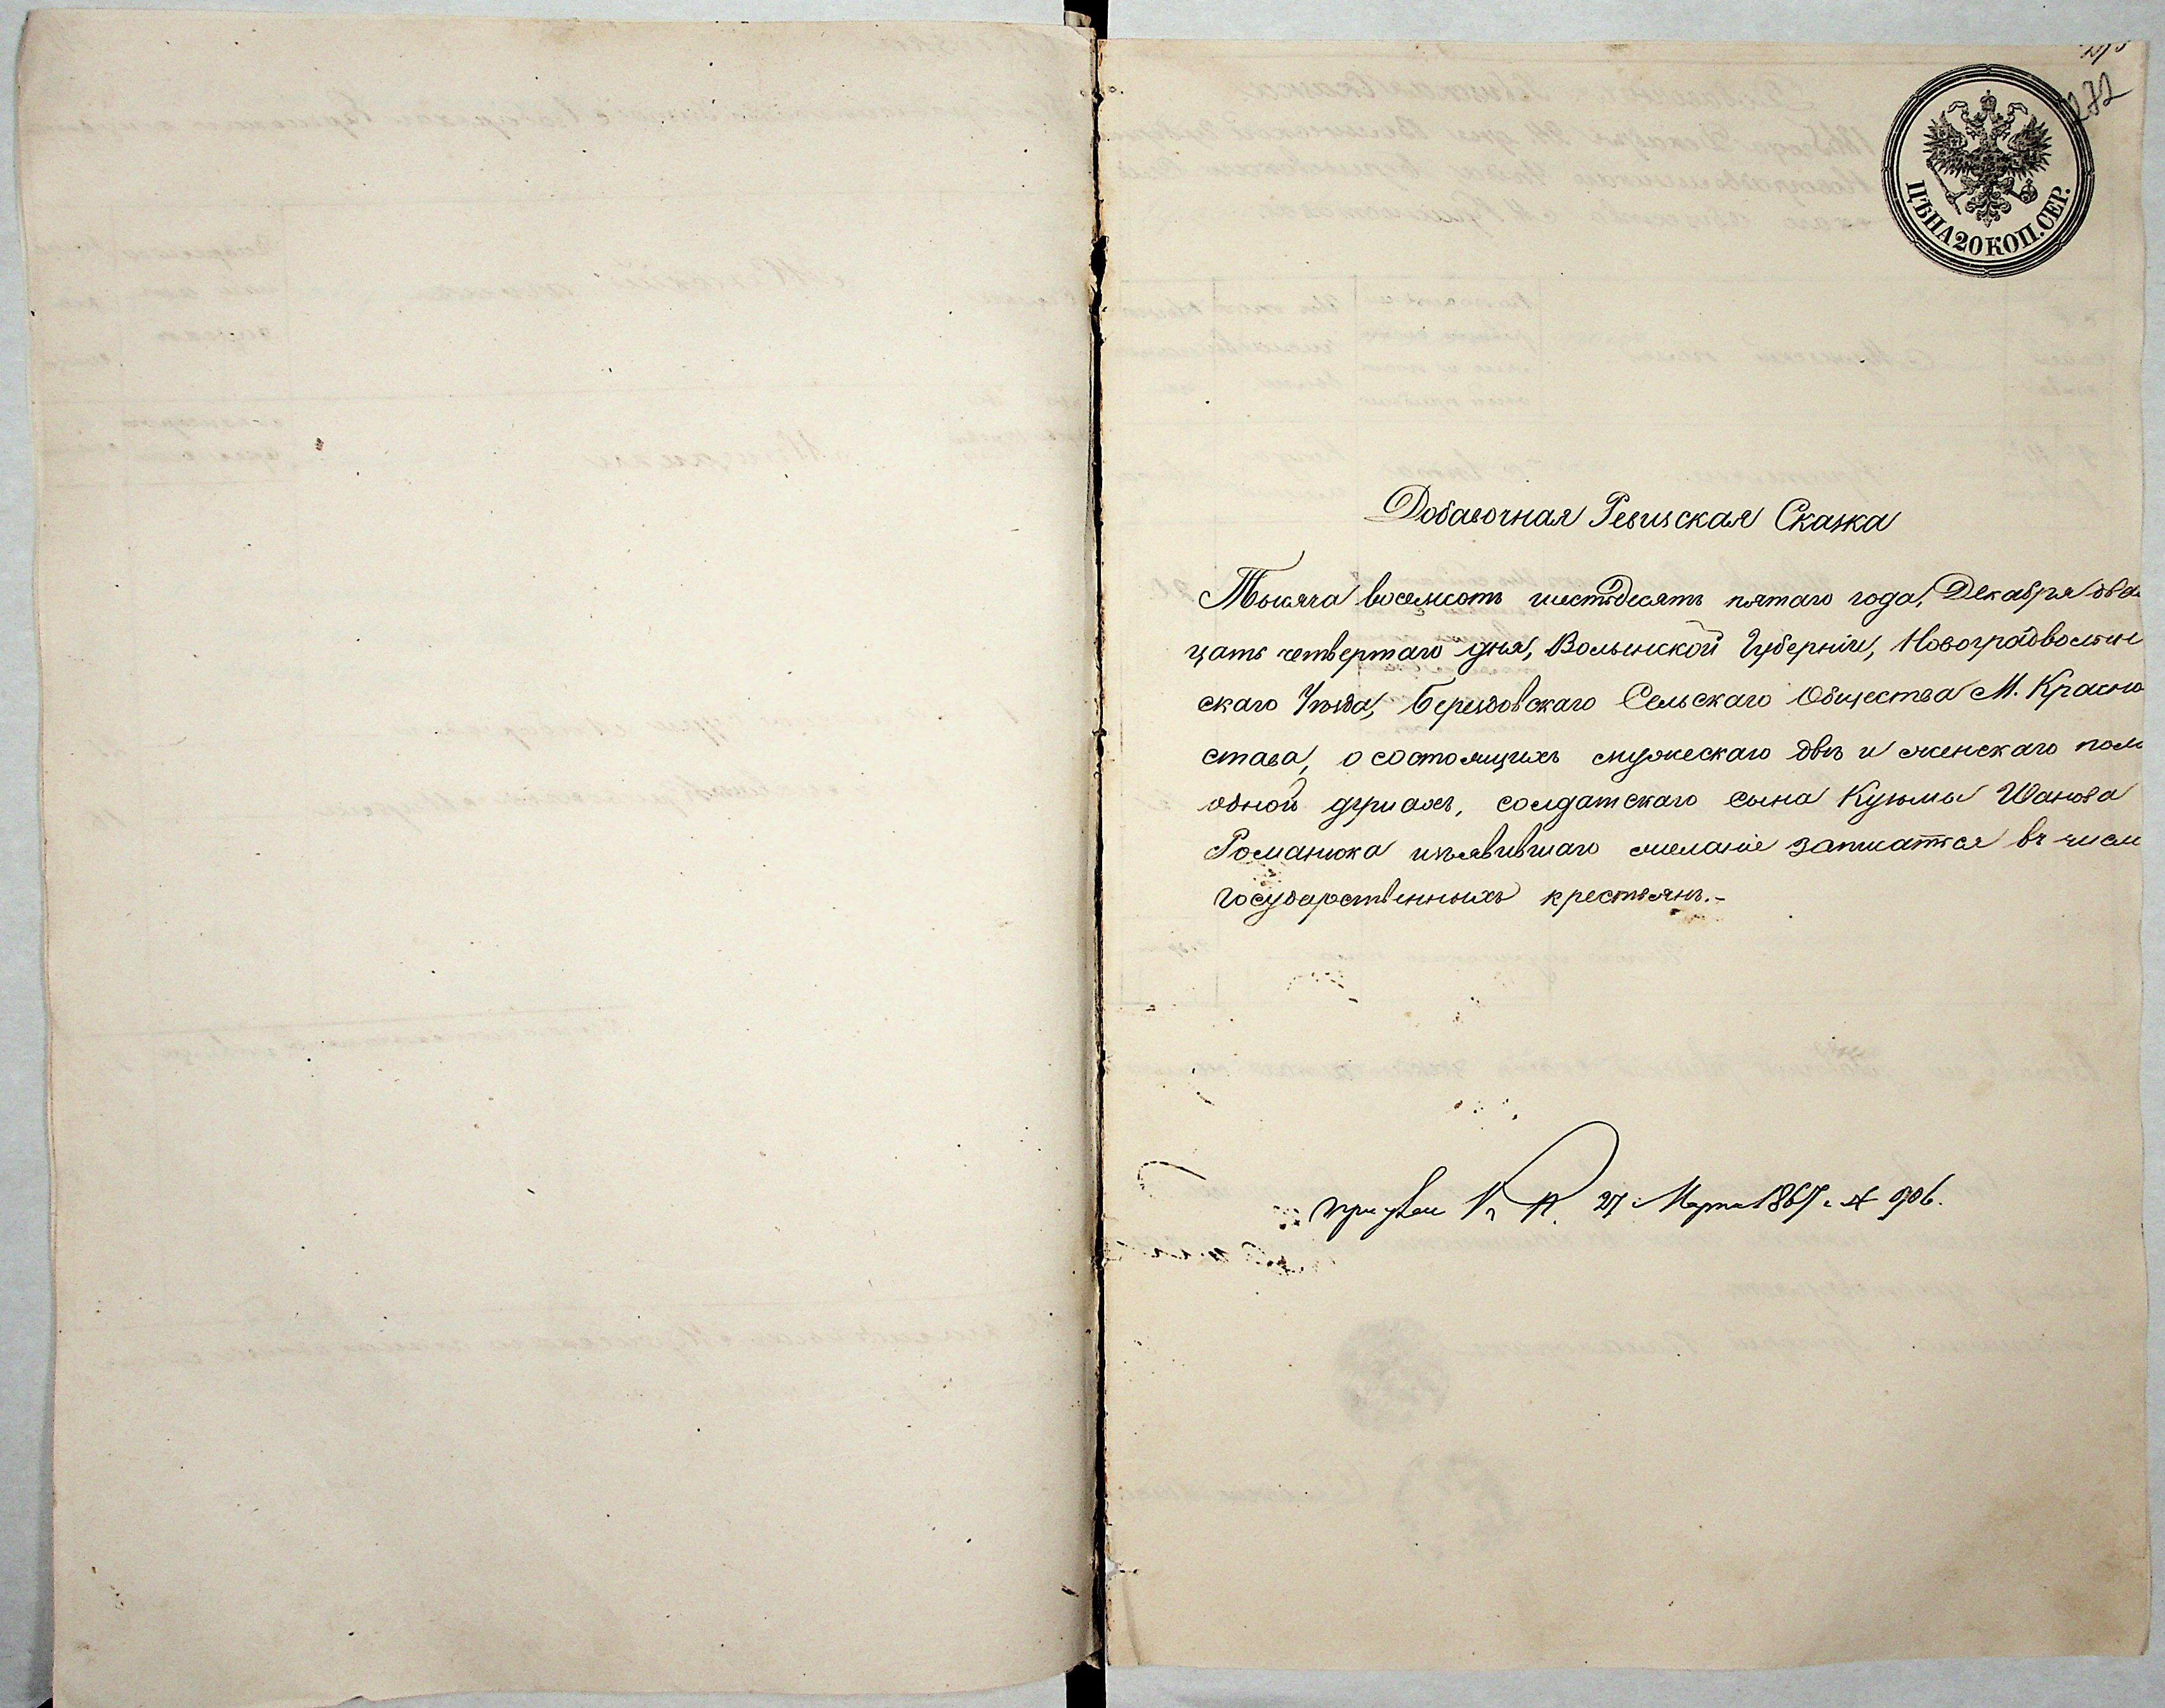 272
ЦѢНА 20 КОП. СЕР.
Добавочная Ревизская Сказка
Тысяча восемсотъ шестьдесятъ пятаго года, Декабря два
цать четвертаго дня, Волынской Губерніи, Новоградволын
скаго Уѣзда, Берездовскаго Сельскаго Общества М. Красно
става, о состоящихъ мужескаго двѣ и женскаго пола
одной душахъ, солдатскаго сына Кузьмы Иванова
Романюка изъявившаго желаніе записатся въ число
государственныхъ крестьянъ.-
при указѣ К. П. 27 Марта 1867 г. № 906.